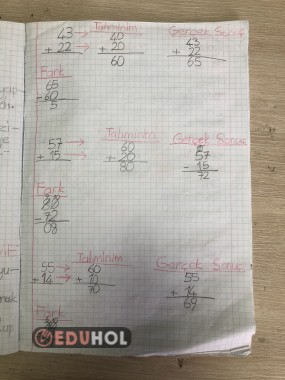 Tahminim Gerçek Sonuç
43 → 40 43
+ 22 → + 20 + 22
60 65
Fark
65
- 60
5
Tahminim Gerçek Sonuç
57 → 60 57
+ 15 → + 20 - 15
80 72
Fark
80
- 72
08
Tahminim Gerçek Sonuç
55 → 60 55
+ 14 → + 10 + 14
70 69
Fark
EDUHOL